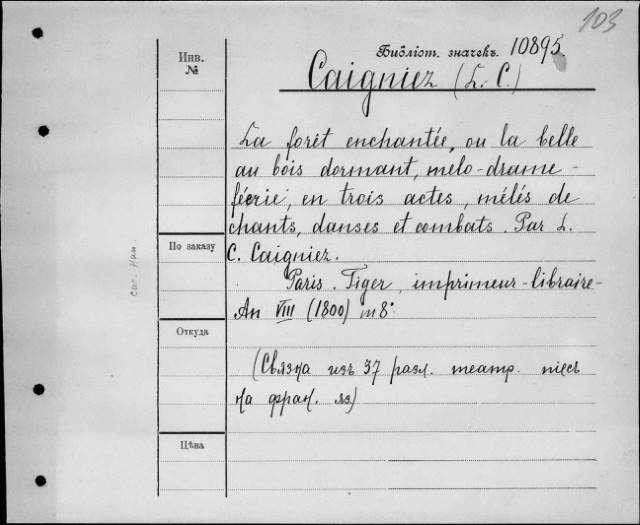 103
Библіот. значекъ. 10895
Caigniez (L. C.)
Инв.
№
La forêt enchantée, ou la belle
au bois dormant, melo-drame-
féerie, en trois actes, mêlés de
chants, danses et combats. Par L.
C. Caigniez.
По заказу
Paris. Tiger, imprimeur-libraire-
An VIII (1800) in 8º
Откуда
(Связка изъ 37 разл. театр. пiесъ
на фран. яз)
Цѣна